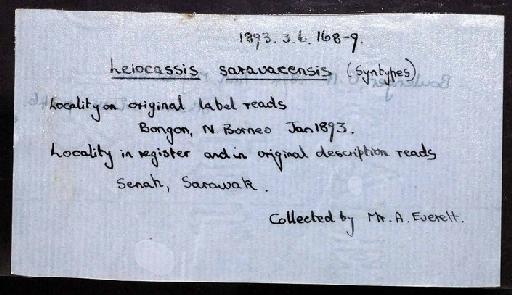 1893. 3. 6. 168-9.
Leiocassis saravacensis (Syntypes)
Locality on original label reads
Bongon, N Borneo Jan 1893.
Locality in register and in original description reads
Senah, Sarawak.
Collected by Mr. A. Everett.